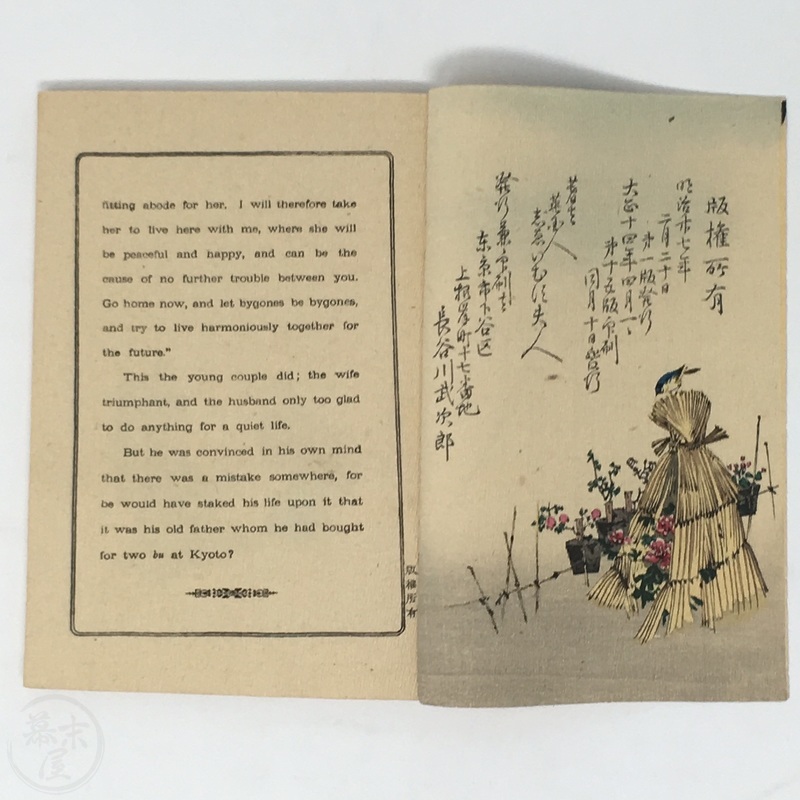 fitting abode for her. I will therefore take
her to live here with me, where she will
be peaceful and happy, and can be the
cause of no further trouble between you.
Go home now, and let bygones be bygones,
and try to live harmoniously together for
the future."
This the young couple did; the wife
triumphant, and the husband only too glad
to do anything for a quiet life.
But he was convinced in his own mind
that there was a mistake somewhere, for
he would have staked his life upon it that
it was his old father whom he had bought
for two bu at Kyoto?
版權所有
版權所有
明治廿七年
二月二十日
第一版發行
大正十四年四月一日
第十五版印刷
同月十日發行
著者
英國人
夫人
發行兼印刷者
东京市下谷区
上根岸町十七番地
長谷川武次郎
幕末屋